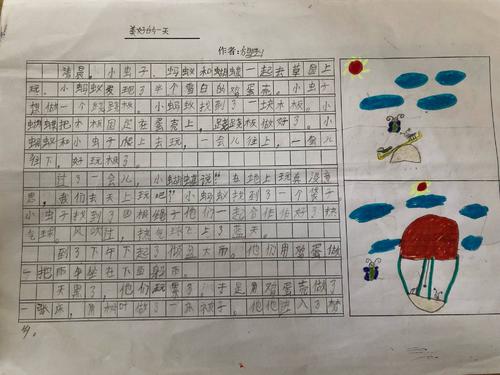 美好的一天
作者:
清晨。小虫子、蚂蚁和蝴蝶一起去草园上
玩。小蚂蚁发现了半个蛋白的鸡蛋壳。小虫子
想做一个跷跷板。小蚂蚁找到了一块木板。小
蝴蝶把木板固定在蛋壳上,跷跷板做好了。小
蚂蚁和小虫子爬上去玩,一会儿往上,一会儿
往下,好玩极了。
过了一会儿,小蝴蝶说“在地上玩真没意
思,我们去天上玩吧”小蚂蚁找到了一个袋子。
小虫子找到了四根绳子他们一起合作作好了热
气球。风吹过,热气球飞上了蓝天。
到了下午下起了倾盆大雨。他们用鸡蛋做
了一把雨伞坐在下面躲雨。
天黑了,他们玩累了于是用鸡蛋壳做了
一张床,用树叶做了一床被子。他们进入了梦
乡。